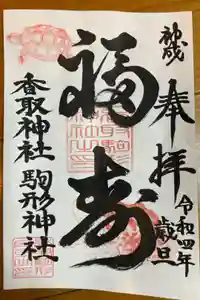 神成
奉拝
令和四年
歳旦
福寿
香取神社 駒形神社